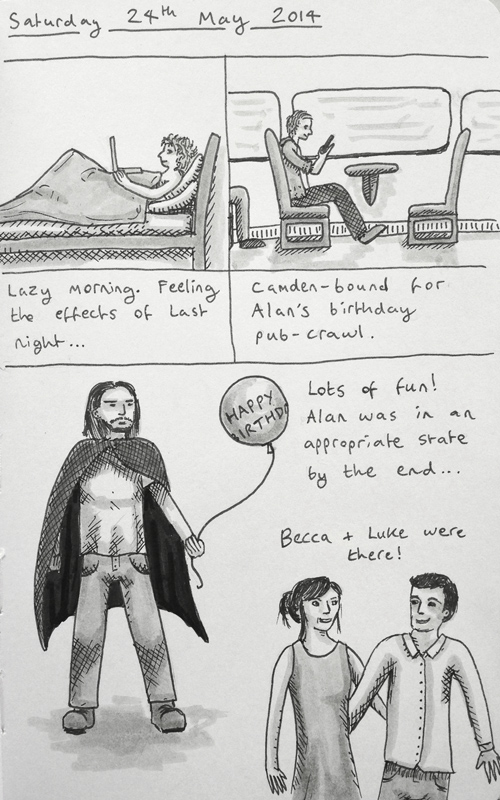 Saturday 24th May 2014
Lazy morning. Feeling
the effects of last
night...
Camden-bound for
Alan's birthday
pub-crawl.
HAPPY
BIRTHD
Lots of fun!
Alan was in an
appropriate state
by the end...
Becca + Luke were
there!